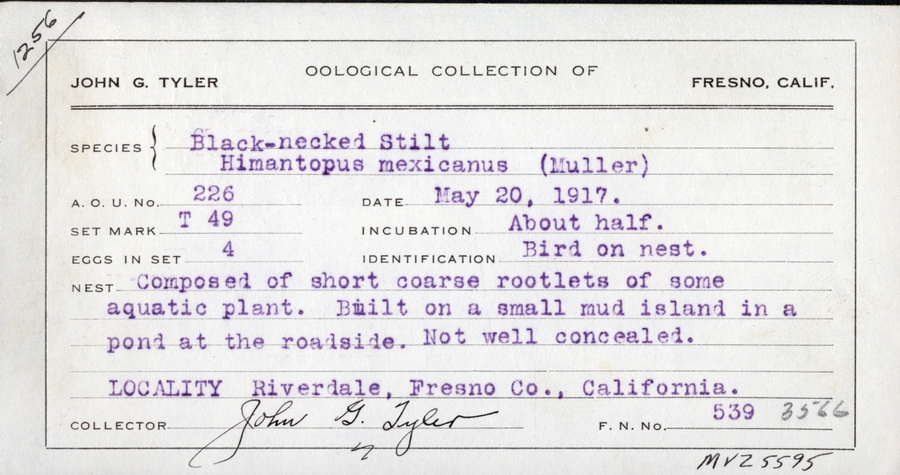 1256
OOLOGICAL COLLECTION OF
JOHN G. TYLER FRESNO, CALIF.
SPECIES { Black-necked Stilt
Himantopus mexicanus (Muller)
A. O. U. No. 226 DATE May 20, 1917.
SET MARK T 49 INCUBATION About half.
EGGS IN SET 4 IDENTIFICATION Bird on nest.
NEST Composed of short coarse rootlets of some
aquatic plant. Built on a small mud island in a
pond at the roadside. Not well concealed.
LOCALITY Riverdale, Fresno Co., California.
COLLECTOR John G. Tyler F. N. No. 539 3566
MVZ 5595